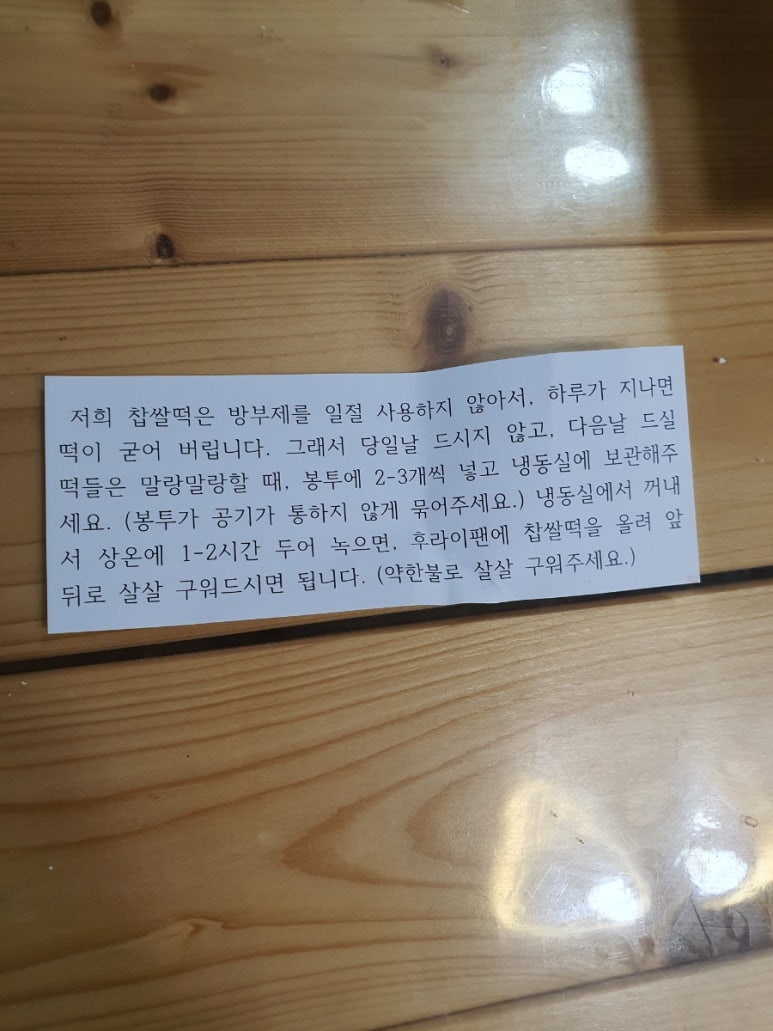 저희 찹쌀떡은 방부제를 일절 사용하지 않아서, 하루가 지나면
떡이 굳어 버립니다. 그래서 당일날 드시지 않고, 다음날 드실
떡들은 말랑말랑할 때, 봉투에 2-3개씩 넣고 냉동실에 보관해주
세요. (봉투가 공기가 통하지 않게 묶어주세요.) 냉동실에서 꺼내
서 상온에 1-2시간 두어 녹으면, 후라이팬에 찹쌀떡을 올려 앞
뒤로 살살 구워드시면 됩니다. (약한불로 살살 구워주세요.)